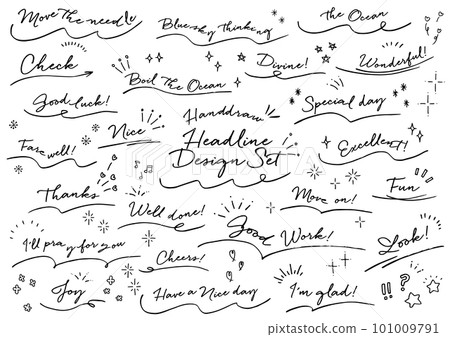 Move The needle
Blue sky thinking
The Ocean
Check
Boil The Ocean
Divine!
Wonderful!
Good luck!
Nice
Handdraw
Headline
Design Set
Special day
Farewell!
Excellent!
Thanks
Well done!
Move on!
Fun
I'll pray for you
Cheers!
Good Work!
Look!
Joy
Have a Nice day
I'm glad!
!! ?
101009791